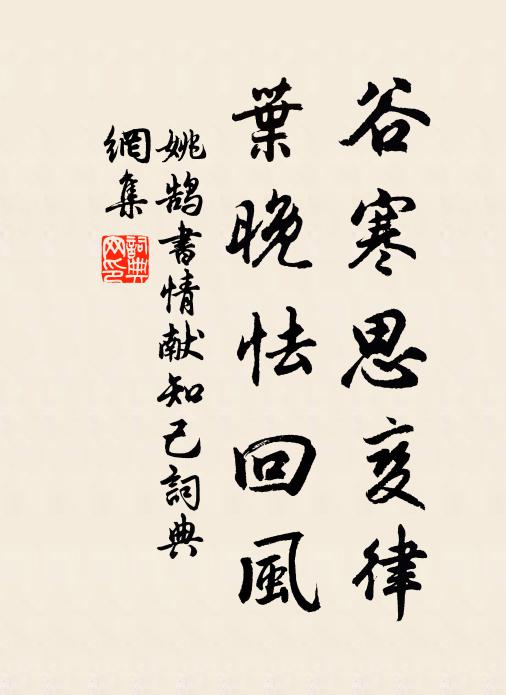 谷寒思变律
葉晚怯回風
姚鹄書情献知己詞典
網集
詞典网印